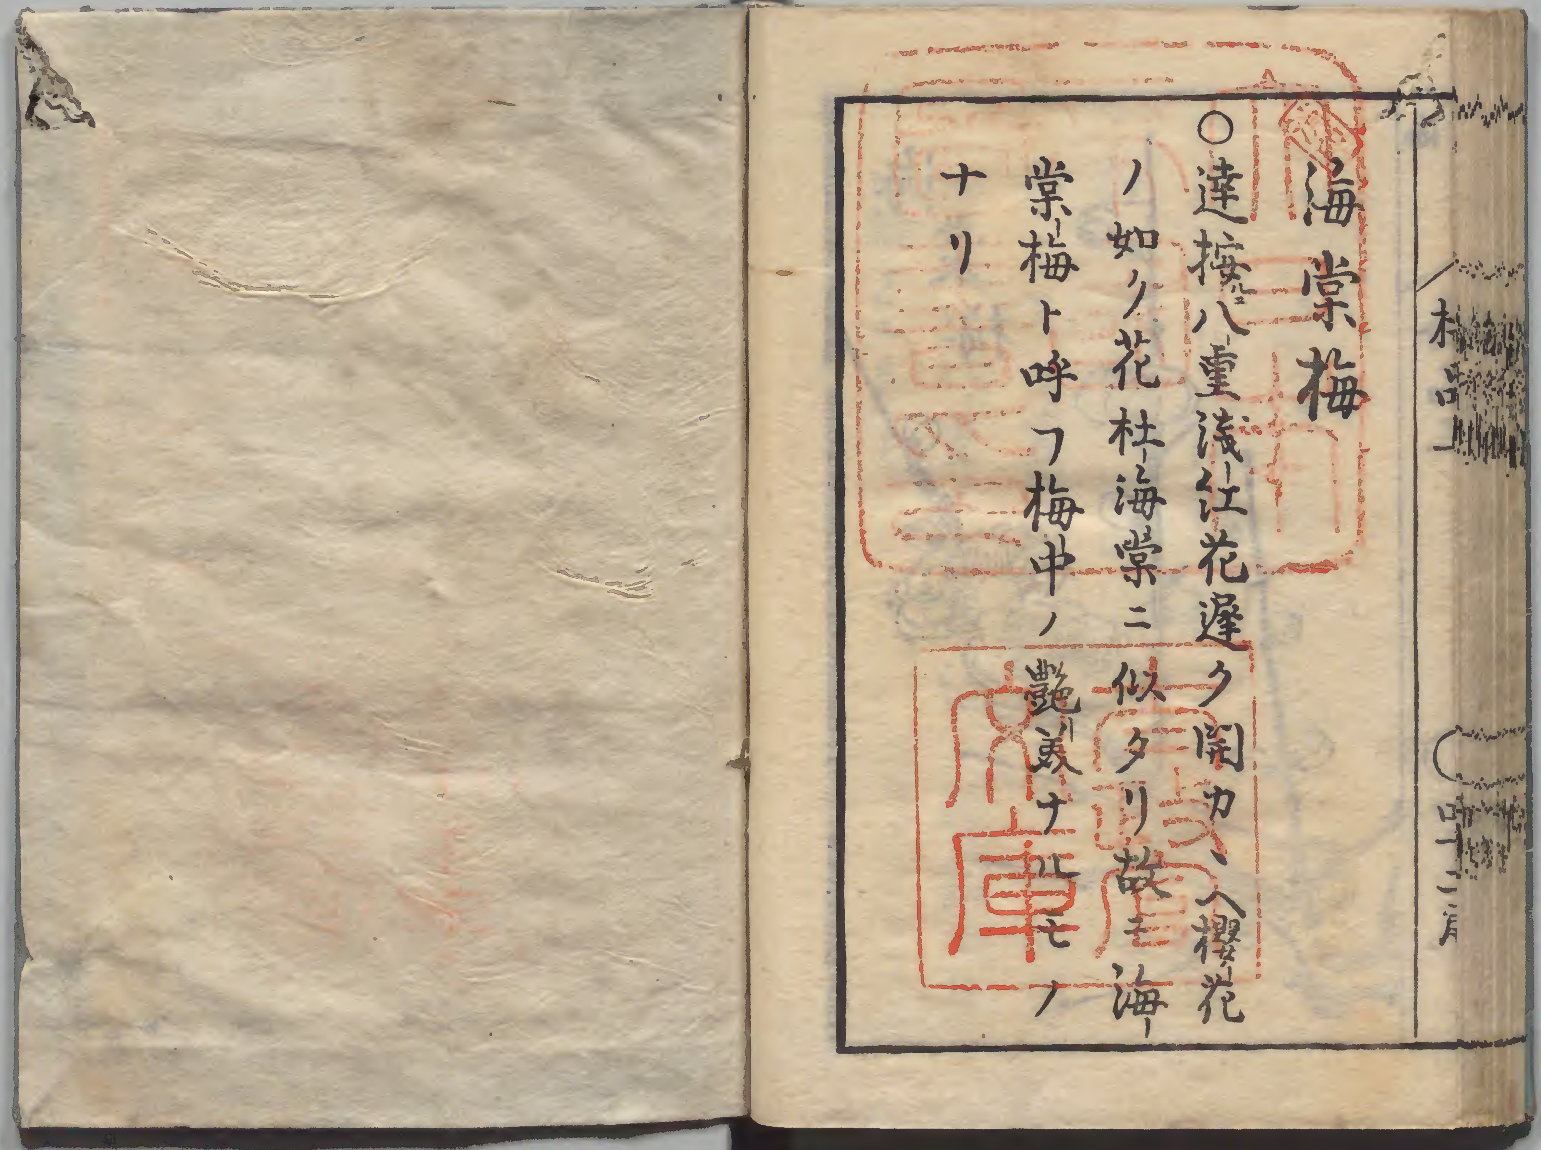 海棠梅
〇達按ニ八重淺紅花遲ク開カヘ櫻花
ノ如ク花杜海棠ニ似タリ故ニ海
棠梅ト呼フ梅中ノ艶美ナルモノ
ナリ
梅品上
四十二
文庫